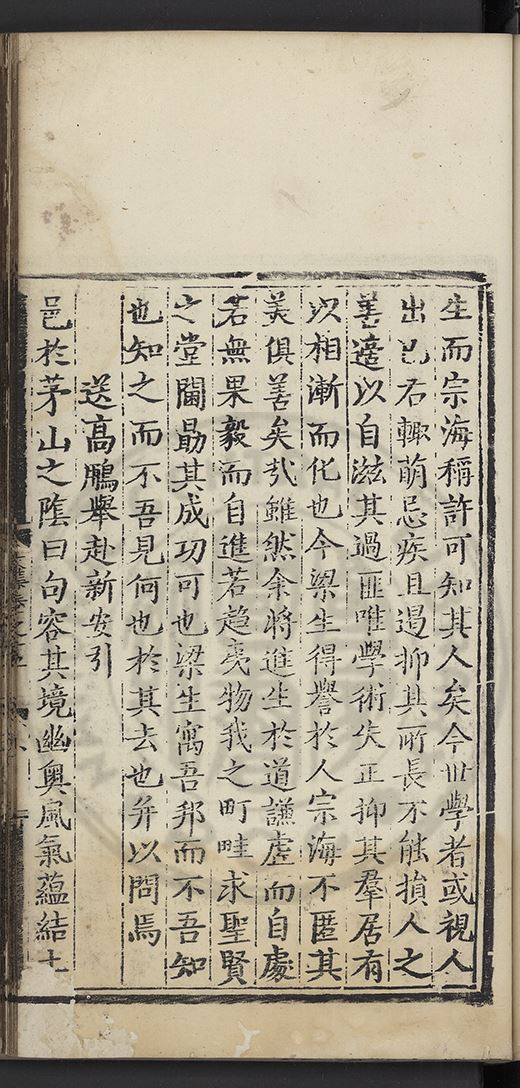 生而宗海稱許可知其人矣今世學者或視人
出己右輙萌忌疾且遏抑其所長不能損人之
善適以自滋其過匪唯學術失正抑其羣居有
以相漸而化也今梁生得譽於人宗海不匿其
美俱善矣㢤雖然余將進生於道謙虛而自處
若無果毅而自進若趋夷物我之町畦求聖賢
之堂閫勗其成功可也梁生寓吾邦而不吾知
也知之而不吾見何也於其去也并以問焉
送高鵬舉赴新安引
邑於茅山之隂曰句容其境幽奧風氣蘊結士